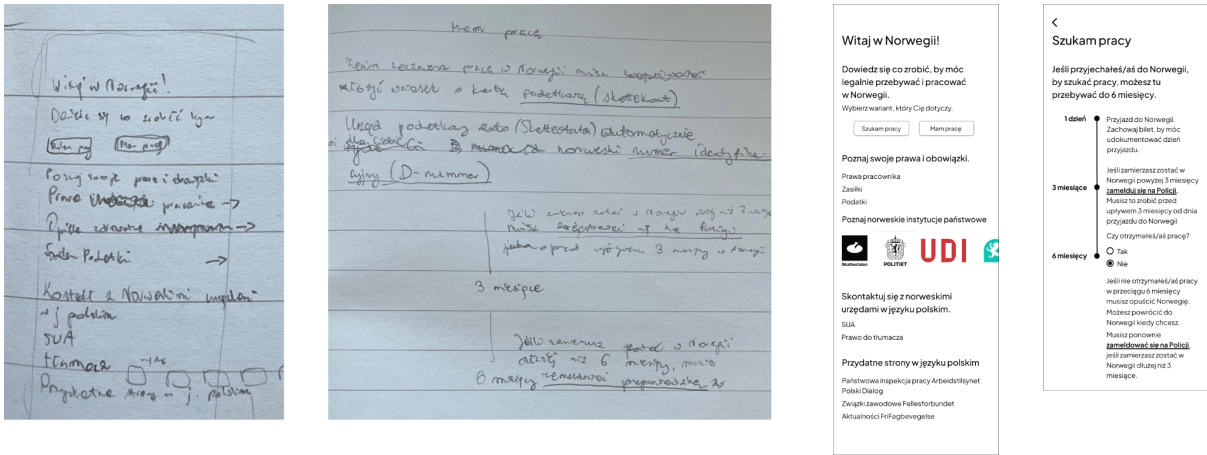 Witaj w Norwegii!
Dowiedz się co zrobić, by
Szukam pracy Mam pracę
Poznaj swoje prawa i obowiązki
Prawa pracownika →
Opieka zdrowotna →
Podatki →
Kontakt z Norweskimi urzędami
w j polskim
SUA
tłumacz
Przydatne strony w j. polskim
Mam pracę
Zanim zaczniesz pracę w Norwegii musisz
złożyć wniosek o kartę podatkową (skattekort)
Urząd podatkowy (Skatteetaten) automatycznie
norweski numer identyfika-
cyjny (D-nummer)
Jeśli w Norwegii niż 3
musisz się na Policji
przed upływem 3 miesięcy
3 miesiące
Jeśli zamierzasz w Norwegii
niż 6 miesięcy, musisz
6 miesięcy
Witaj w Norwegii!
Dowiedz się co zrobić, by móc
legalnie przebywać i pracować
w Norwegii.
Wybierz wariant, który Cię dotyczy.
Szukam pracy Mam pracę
Poznaj swoje prawa i obowiązki.
Prawa pracownika
Zasiłki
Podatki
Poznaj norweskie instytucje państwowe
Skatteetaten POLITIET UDI
Skontaktuj się z norweskimi
urzędami w języku polskim.
SUA
Prawo do tłumacza
Przydatne strony w języku polskim
Państwowa inspekcja pracy Arbeidstilsynet
Polski Dialog
Związki zawodowe Fellesforbundet
Aktualności FriFagbevegelse
Szukam pracy
Jeśli przyjechałeś/aś do Norwegii,
by szukać pracy, możesz tu
przebywać do 6 miesięcy.
1 dzień Przyjazd do Norwegii.
Zachowaj bilet, by móc
udokumentować dzień
przyjazdu.
Jeśli zamierzasz zostać w
Norwegii powyżej 3 miesięcy
3 miesiące zamelduj się na Policji.
Musisz to zrobić przed
upływem 3 miesięcy od dnia
przyjazdu do Norwegii
Czy otrzymałeś/aś pracę?
Tak
6 miesięcy
Nie
Jeśli nie otrzymałeś/aś pracy
w przeciągu 6 miesięcy
musisz opuścić Norwegię.
Możesz powrócić do
Norwegii kiedy chcesz.
Musisz ponownie
zameldować się na Policji,
jeśli zamierzasz zostać w
Norwegii dłużej niż 3
miesiące.